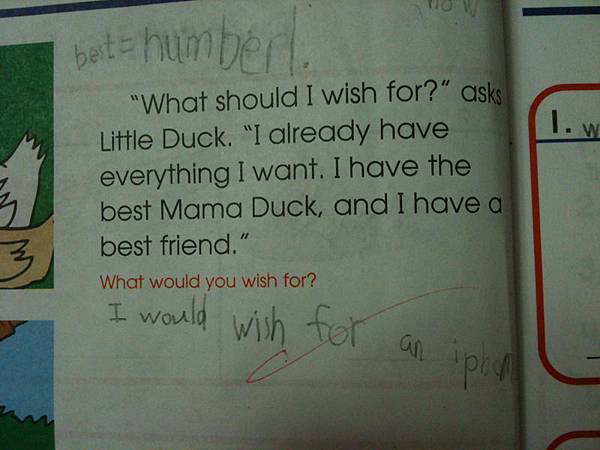 now
best = number 1.
"What should I wish for?" asks
Little Duck. "I already have
everything I want. I have the
best Mama Duck, and I have a
best friend."
What would you wish for?
I would wish for an
1. W